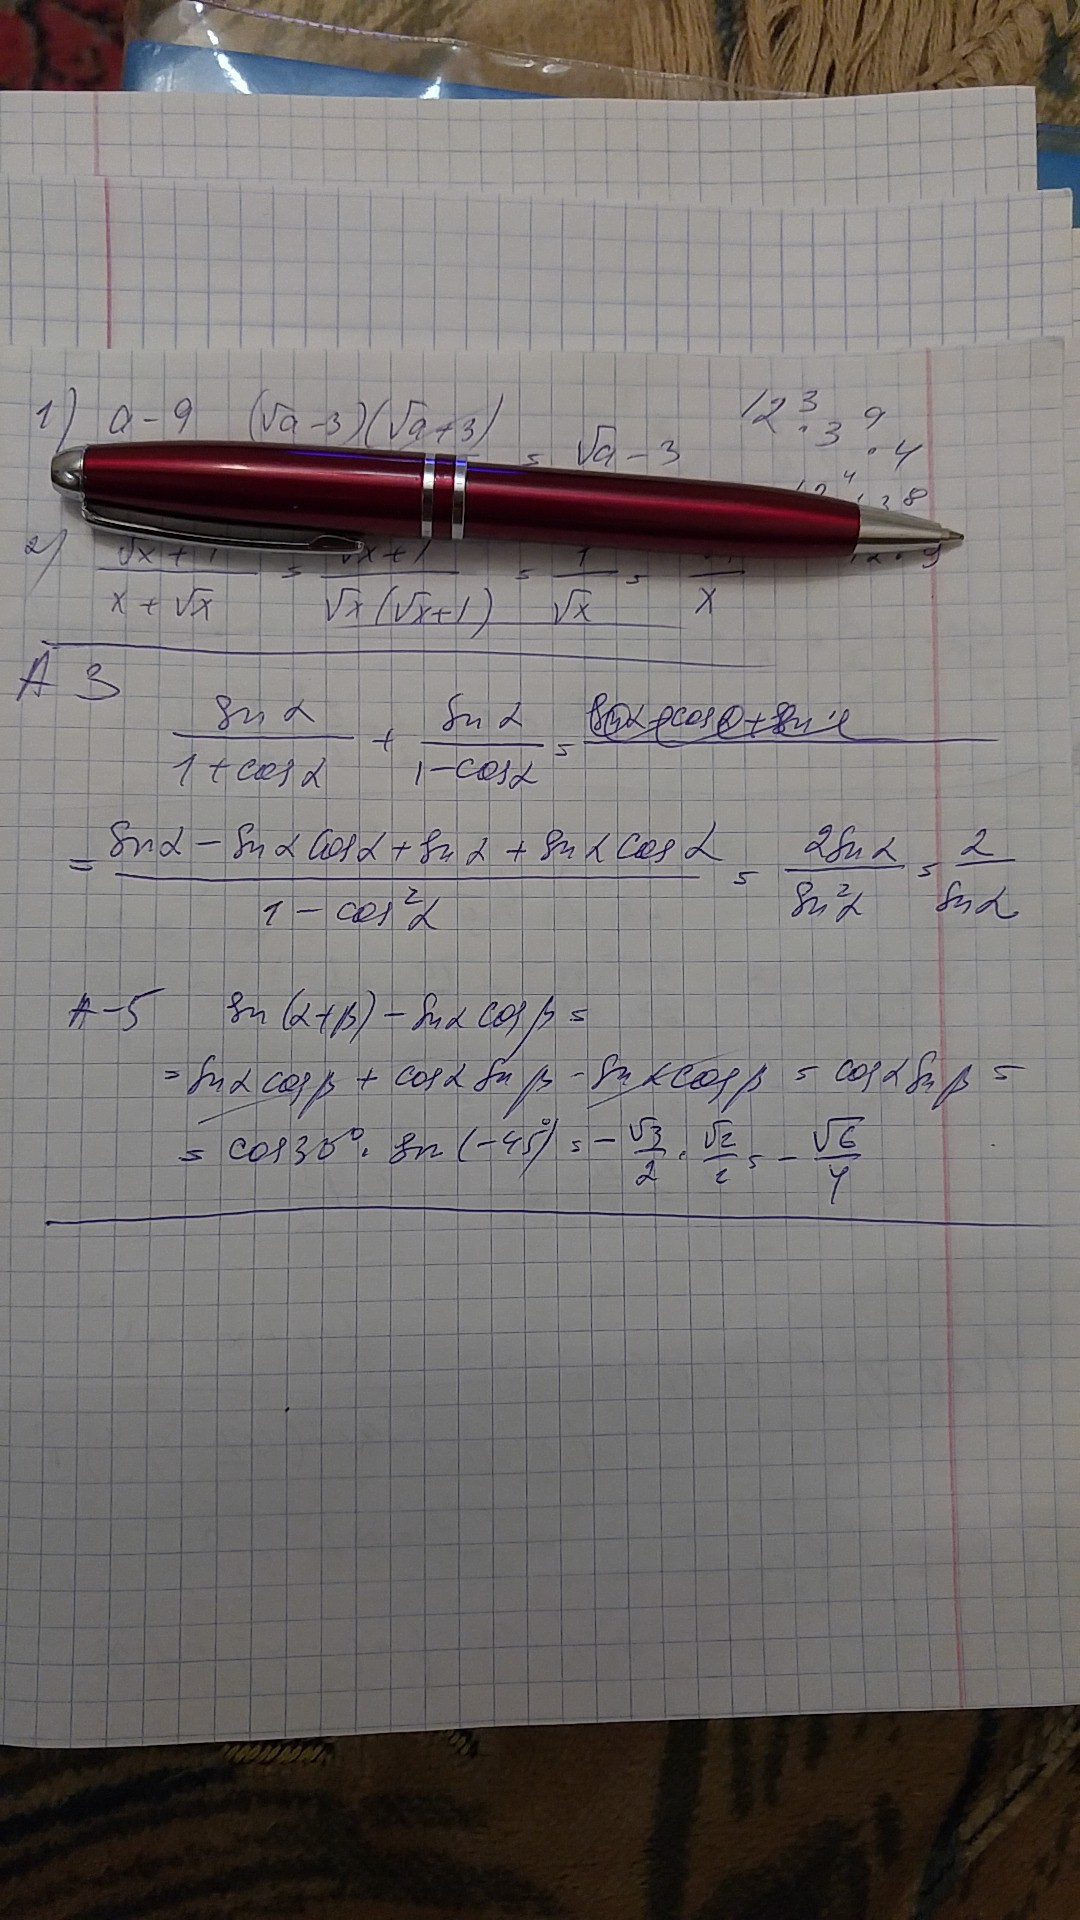 1) a - 9 (√a - 3)(√a + 3) = √a - 3
12³ · 3 9 · 4
2) (√x + 1)/(x + √x) = (√x + 1)/(√x(√x + 1)) = 1/√x = /x
A 3
sin α/(1 + cos α) + sin α/(1 - cos α) =
= (sin α - sin α cos α + sin α + sin α cos α)/(1 - cos² α) = 2 sin α/sin² α = 2/sin α
A-5 sin(α + β) - sin α cos β =
= sin α cos β + cos α sin β - sin α cos β = cos α sin β =
= cos 30° · sin(-45°) = - √3/2 · √2/2 = - √6/4